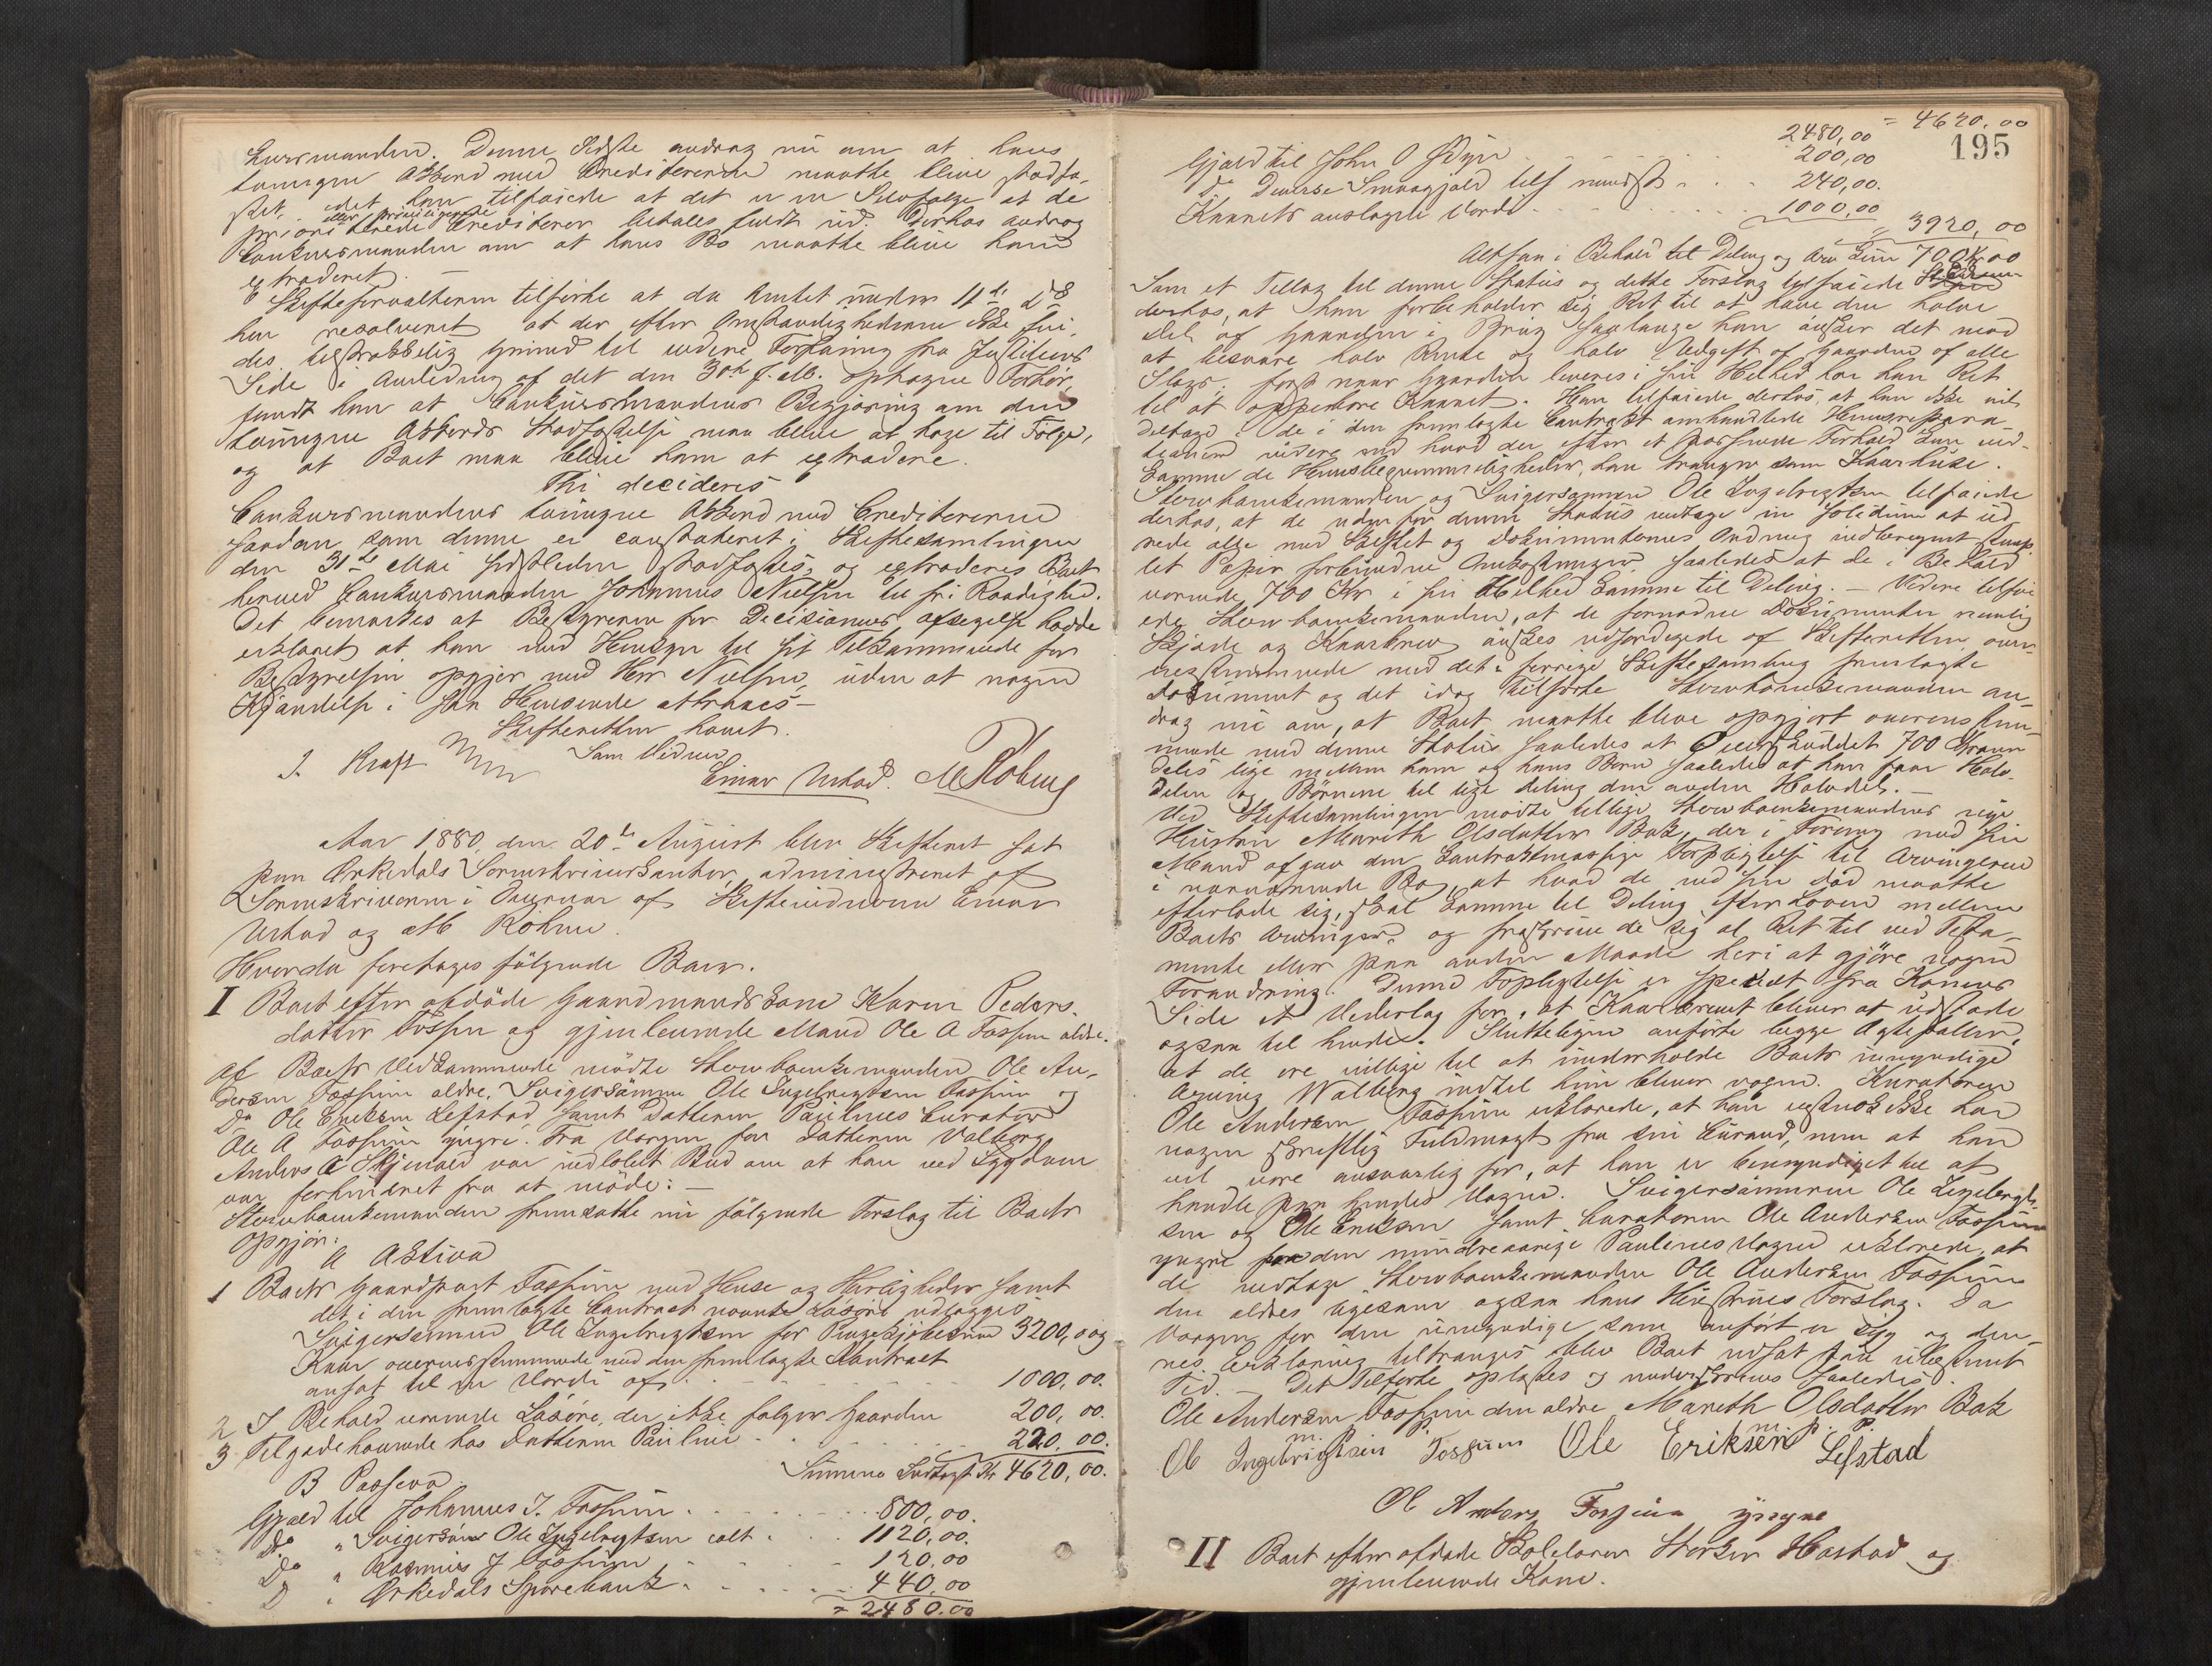 kursmanden. Denne Sidste androg nu om at hans
tvungne Akkord med Creditorerne maatte blive stadfæ-
stet, idet han tilføiede at det er en Selvfølge at de
eller privilegerede
prioriterede Creditorer betales fuldt ud. Derhos androg
Concursmanden om at hans Bo maatte blive ham
extraderet. —
Skifteforvalteren tilførte at da Amtet under 11te ds
har resolveret at der efter Omstændighederne ikke fin-
des tilstrækkelig Grund til videre Forføining fra Justitiens
Side i Anledning af det den 30te f. M. optagne Forhør,
fandt han at Concursmandens Begjæring om den
tvungne Akkords Stadfæstelse maa blive at tage til Følge,
og at Boet maa blive ham at extradere.
Thi decideres
Concursmandens tvungne Akkord med Creditorerne
saadan som denne er constateret i Skiftesamlingen
den 31te Mai sidstleden stadfæstes, og extraderes Boet
herved Concursmanden Johannes Nielsen til fri Raadighed.
Det bemærkes at Bestyreren før Decisionens afsigelse havde
erklæret at han med Hensyn til sit Tilkommende for
Bestyrelsen opgjør med Herr Nielsen, uden at nogen
Kjendelse i saa Henseende attraaes —
Skifteretten hævet.
J. Kraft Som Vidner
Einar Urstad. M Roberg
Aar 1880, den 20de August blev Skifteret sat
paa Orkedals Sorenskriverkontor, administreret af
Sorenskriveren i Overvær af Skiftevidnerne Einar
Urstad og M Rohne.
Hvorda foretages følgende Boer.
I Boet efter afdøde Gaardmandskone Karen Peders-
datter Fossum og gjenlevende Mand Ole A Fossum ældre.
Af Boets Vedkommende mødte Stervboenkemanden Ole An-
dersen Fossum ældre, Svigersønnen Ole Ingebrigtsen Fossum og
Do Ole Eriksen Lefstad samt Datteren Paulines Curator
Ole A Fossum yngre. Fra Værgen for Datteren Valborg
Anders A Skjenald var indløbet Bud om at han ved Sygdom
var forhindret fra at møde: —
Stervboenkemanden fremsatte nu følgende Forslag til Boets
Opgjør:
A Aktiva
1 Boets Gaardpart Fossum med Huse og Herligheder samt
det i den fremlagte Contract nævnte Løsøre udlægges
Svigersønnen Ole Ingebrigtsen for Pengekjøbesum 3200,00 og
Kaar overensstemmende med den fremlagte Kontract
ansat til en Værdi af . . . 1000,00.
2 I Behold værende Løsøre, der ikke følger Gaarden 200,00.
3 Tilgodehavende hos Datteren Pauline . . . 220,00.
Summa Indtægt Kr 4620,00.
B Passiva
Gjæld til Johannes J. Fossum . . . 800,00.
Do " Svigersøn Ole Ingebrigtsen ialt . . 1120,00.
Do " Rasmus J Fossum . . . 120,00
D " Orkedals Sparebank . . . 440,00
= 2480,00
195
2480,00 = 4620,00
Gjæld til John O . . . 200,00
Do Diverse Smaagjæld . . . 240,00.
Kaarets anslagne Værdi . . . 1000,00
= 3920,00
Altsaa i Behold til Deling og Arv Kun 700 Kr 00
Som et Tillæg til denne Status og dette Forslag tilføiede
derhos, at han forbeholder sig Ret til at have den halve
Del af Gaarden i Brug saalænge han ønsker det mod
at besvare halv Rente og halv Udgift af Gaarden af alle
Slags: først naar Gaarden leveres i sin Helhed har han Ret
til at oppebære Kaaret. Han tilføiede derhos, at han ikke vil
deltage i de i den fremlagte Contrakt omhandlede Husrepara-
tioner videre end hvad der efter et passende Forhold kan ved-
komme de Husbekvemmeligheder, han trænger som Kaarhuse.
Stervboenkemanden og Svigersønnen Ole Ingebrigtsen tilføiede
derhos, at de uden for denne Status vedtage in solidum at ud-
rede alle med Skiftet og Dokumenternes Ordning iberegnet stemp-
let Papir forbundne Omkostninger saaledes at de i Behold
værende 700 Kr i sin Helhed komme til Deling. — Videre tilføi-
ede Stervboenkemanden, at de fornødne Dokumenter nemlig
Skjøde og Kaarbrev ønskes udfærdigede af Skifteretten over-
ensstemmende med det i forrige Skiftesamling fremlagte
Dokument og det idag Tilførte. Stervboenkemanden an-
drog nu om, at Boet maatte blive opgjort overensstem-
mende med denne Status saaledes at Overskuddet 700 Kroner
deles lige mellem ham og hans Børn saaledes at han faar Halv-
delen og Børnene til lige deling den anden Halvdel. —
Ved Skiftesamlingen mødte tillige Stervboenkemandens nye
Hustru Mareth Olsdatter Bak, der i Forening med sin
Mand afgav den kontraktmæssige Forpligtelse til Arvingerne
i nærværende Bo, at hvad de ved sin Død maatte
efterlade sig, skal komme til Deling efter Loven mellem
Boets Arvinger, og fraskrive de sig al Ret til ved Testa-
mente eller paa anden Maade heri at gjøre nogen
Forandring. Denne Forpligtelse er specielt fra Konens
Side et Vederlag for, at Kaarbrevet bliver at udstæde
ogsaa til hende. Sluttelegen anførte begge Ægtefæller,
at de ere villige til at underholde Boets umyndige
Arving Walborg indtil hun bliver voxen. Kuratoren
Ole Andersen Fossum erklærede, at han vistnok ikke har
nogen skriftlig Fuldmagt fra sin Curand, men at han
vil være ansvarlig for, at han er bemyndiget til at
handle paa hendes Vegne. Svigersønnerne Ole Ingebrigt-
sen og Ole Eriksen samt Curatoren Ole Andersen Fossum
yngre paa den mindreaarige Paulines Vegne erklærede, at
de vedtage Stervboenkemanden Ole Andersen Fossum
den ældres ligesom ogsaa hans Hustrues Forslag. Da
Værgen for den umyndige som anført er syg og den-
nes Erklæring tiltrænges blev Boet udsat paa ubestemt
Tid. — Det Tilførte oplæstes og underskreves saaledes.
Ole Andersen Fossum den ældre Mareth Olsdatter Bak
m. p. P. m. p. P.
Ole Ingebrigtsen Fossum Ole Eriksen Lefstad
Ole Anders Fossum yngre
II Boet efter afdøde Selveier Størker Hastad og
gjenlevende Kone.